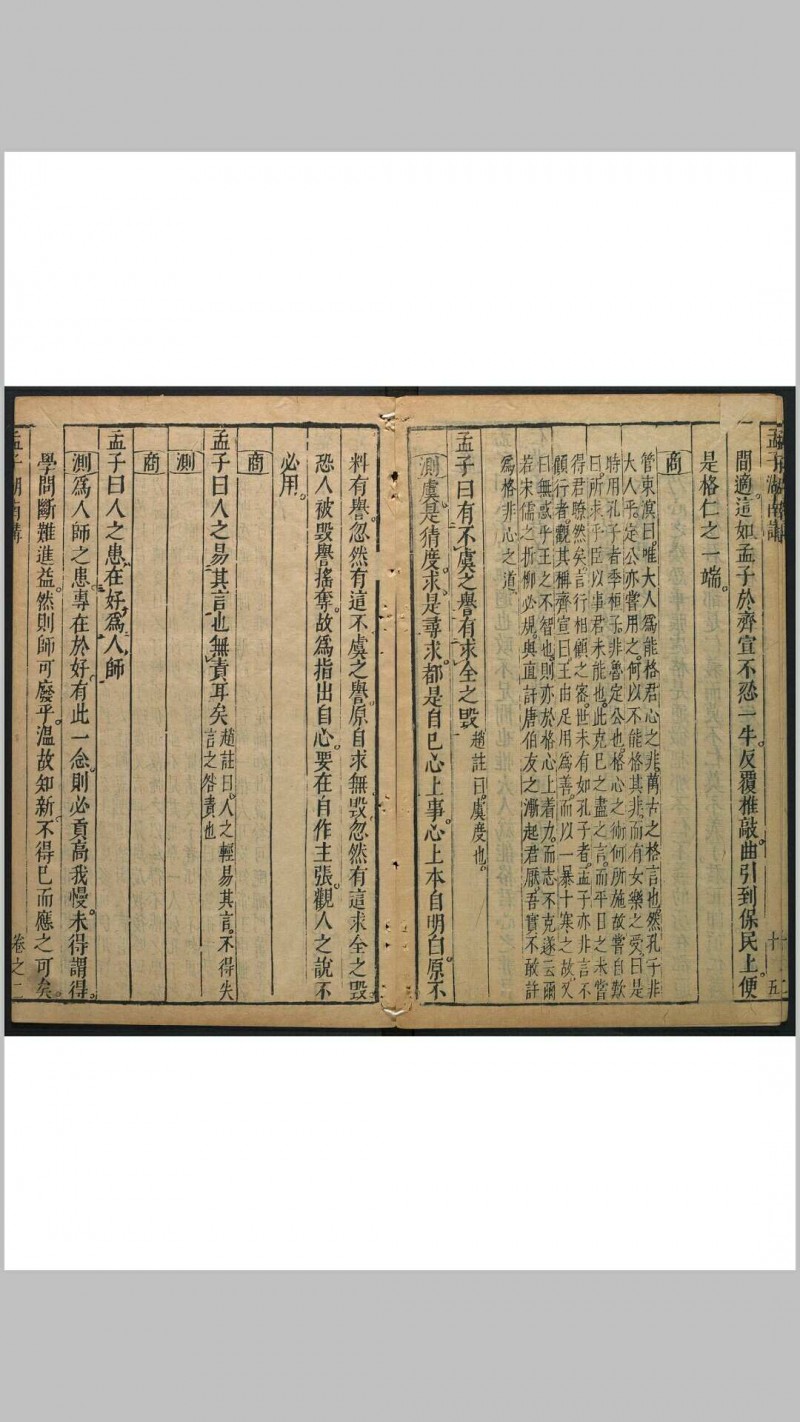 孟子湖南講
十五
間適。這如孟子於齊宣不忍一牛。反覆推敲。曲引到保民上。便
是格仁之一端。
商
管東溟曰。唯大人為能格君心之非。萬古之格言也。然孔子非
大人乎。定公亦嘗用之。何以不能格其非。而有女樂之受。曰是
時用孔子者季桓子。非魯定公也。格心之術何所施。故嘗自歎
曰。所求乎臣以事君未能也。此克巳之盡之言。而平日之未嘗
得君瞭然矣。言行相顧之密。世未有如孔子者。孟子亦非言不
顧行者。觀其稱齊宣曰。王由足用為善。而以一暴十寒之故。又
曰無或乎王之不智也。則亦於格心上着力。而志不克遂云爾
若宋儒之折柳必規。與直訐唐伯友之漸起君厭。吾實不敢許
為格非心之道。
孟子曰有不虞之譽有求全之毀
趙註曰。虞度也。
測虞是猜度。求是尋求。都是自巳心上事。心上本自明白。原不
料有譽。忽然有這不虞之譽。原自求無毀。忽然有這求全之毀
恐人被毀譽搖奪。故為指出自心。要在自作主張。觀人之說不
必用。
商
孟子曰人之易其言也無責耳矣
趙註曰。人之輕易其言。不得失
言之咎責也
測
商
孟子曰人之患在好為人師
測為人師之患。專在於好。有此一念。則必貢高我慢。未得謂得。
學問斷難進益。然則師可廢乎。溫故知新。不得巳而應之可矣。
孟子湖南講
卷之二